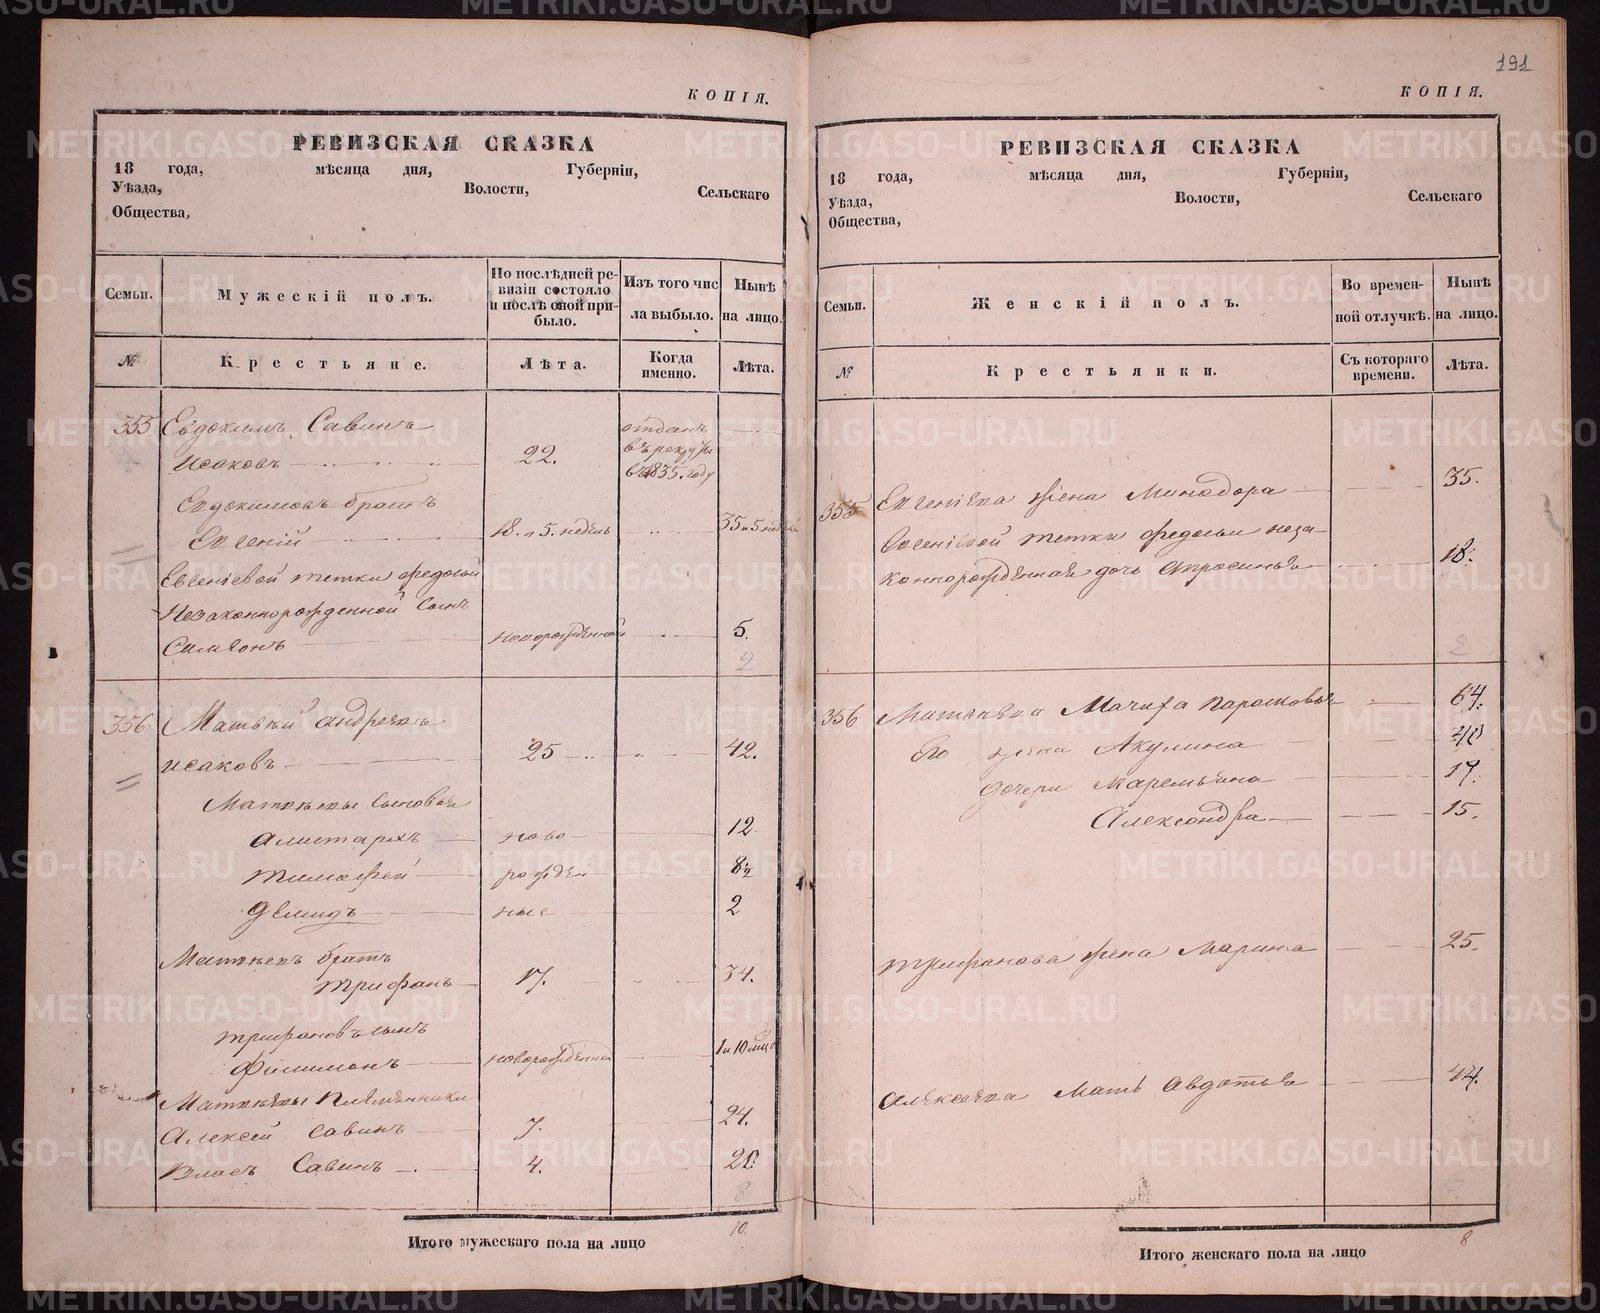 КОПІЯ.
РЕВИЗСКАЯ СКАЗКА
18 года, мѣсяца дня, Губерніи,
Уѣзда, Волости, Сельскаго
Общества,
Семьи. Мужескій полъ. По послѣдней ревизіи состояло и послѣ оной прибыло. Изъ того числа выбыло. Нынѣ на лицо.
№ Крестьяне. Лѣта. Когда именно. Лѣта.
355 Евдокимъ Савинъ отданъ
Исаковъ 22. въ рекруты
въ 1835. году
Евдокимовъ братъ
Евгеній 18. и 5. недѣль 35 и 5 недѣль
Евгеніевой тетки Федосьи
Незаконнорожденной сынъ
Симеонъ новорожденной 5.
2
356 Матвѣй Андреевъ
Исаковъ 25 42.
Матвѣевы сыновья
Алистархъ ново 12.
Тимофей рожден 8½
Демидъ ные 2
Матвѣевъ братъ
Трифанъ 17. 34.
Трифановъ сынъ
Филимонъ новорожденной 1 и 10 мѣсяц
Матвѣевы племянники
Алексей Савинъ 7. 24.
Власъ Савинъ 4. 21.
8
Итого мужескаго пола на лицо 10.
191
КОПІЯ.
РЕВИЗСКАЯ СКАЗКА
18 года, мѣсяца дня, Губерніи,
Уѣзда, Волости, Сельскаго
Общества,
Семьи. Женскій полъ. Во временной отлучкѣ. Нынѣ на лицо.
№ Крестьянки. Съ котораго времени. Лѣта.
355 Евгеніева жена Минодора 35.
Евгеніевой тетки Федосьи неза-
коннорожденная дочь Апросинья 18.
2
356 Матвѣева Мачиха Парасковья 64.
Его жена Акулина 40
дочери Маремьяна 17.
Александра 15.
Трифанова жена Марина 25.
Алексѣева Мать Авдотья 44.
6
Итого женскаго пола на лицо 8
METRIKI.GASO-URAL.RU